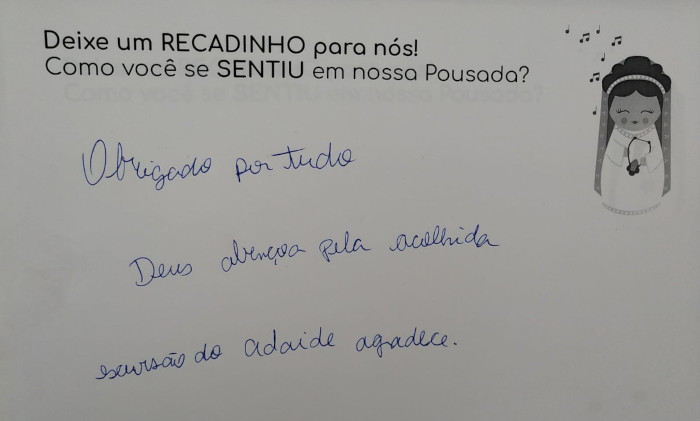 Deixe um RECADINHO para nós!
Como você se SENTIU em nossa Pousada?
Obrigado por tudo
Deus abençoa pela acolhida
escursão do Adaide agradece.